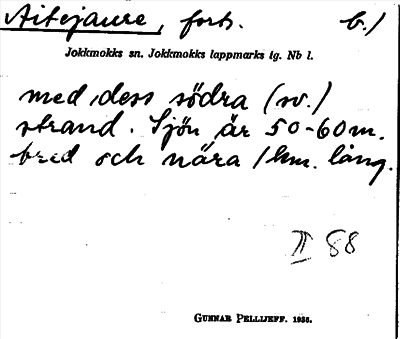 Aitejaure, forts. b.)
Jokkmokks sn. Jokkmokks lappmarks tg. Nb l.
med dess södra (sv.)
strand. Sjön är 50-60 m.
bred och nära 1 km. lång.
II 88
GUNNAR PELLIJEFF. 1936.